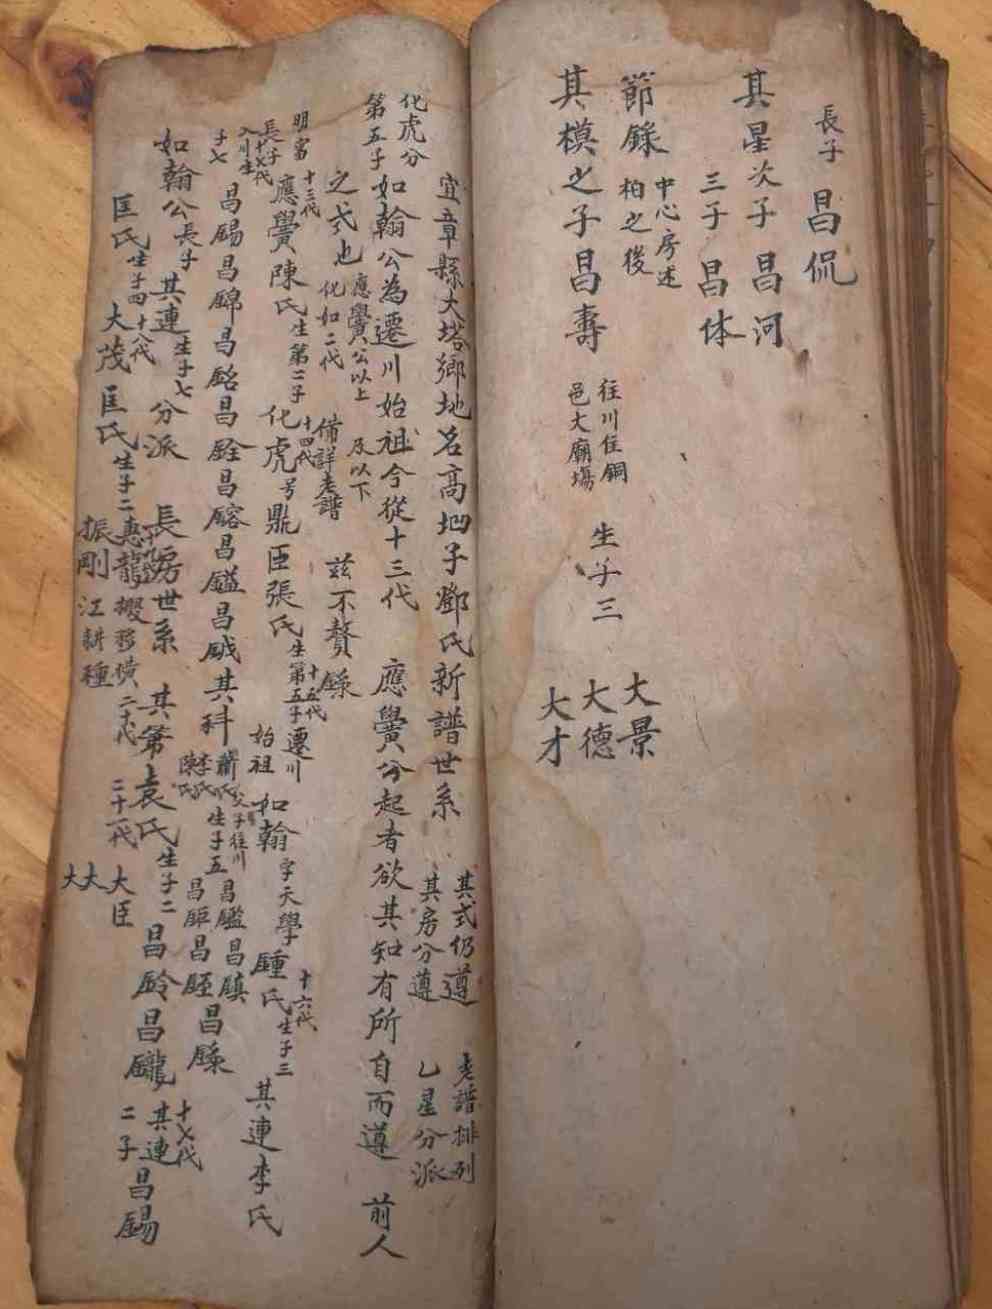 長子 昌侃
其星次子 昌河
三子 昌体
節錄 中心房述
柏之後
其模之子昌壽 往川住銅
邑大廟場 生子三 大景
大德
大才
宜章縣大塔鄉地名高坳子鄧氏新譜世系 其式仍遵 老譜排列
其房分遵 乙星分派
化虎分
第五子 如翰公為遷川始祖今從十三代 應黌公起者欲其知有所自而遵 前人
之式也 應黌公以上 及以下
化如二代 備詳老譜 茲不贅錄
明當 十三代
應黌陳氏 生第二子 十四代 化虎 号鼎臣張氏 生第五子 十五代 遷川
始祖 如翰 字天學 鍾氏 生子三 十六代 其連李氏
長子 十七代
入川生
子七 昌錫昌錦昌銘昌銓昌鎔昌鎰昌鉞其科 蕭氏 父子往川
李氏
陳氏 生子五 昌鑑昌鎮
昌鉅昌
昌
如翰公長子其連 生子七 分派 長房世系 其第袁氏 生子二 昌鈴昌鑨 十七代 其連
二子 昌錫
匡氏 生子四 十八代 大茂匡氏 生子二 惠龍 搬移橫 二十代 二十一代 大臣
振剛 江耕種 大大